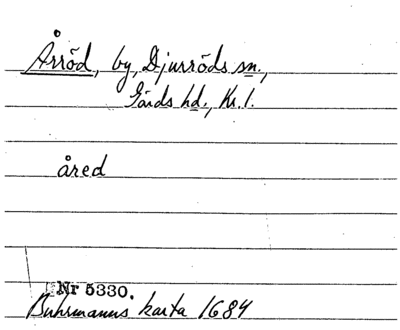 Årröd, by, Djurröds sn.,
Gärds hd., Kr. l.
åred
Nr 5330.
Buhrmanns karta 1684